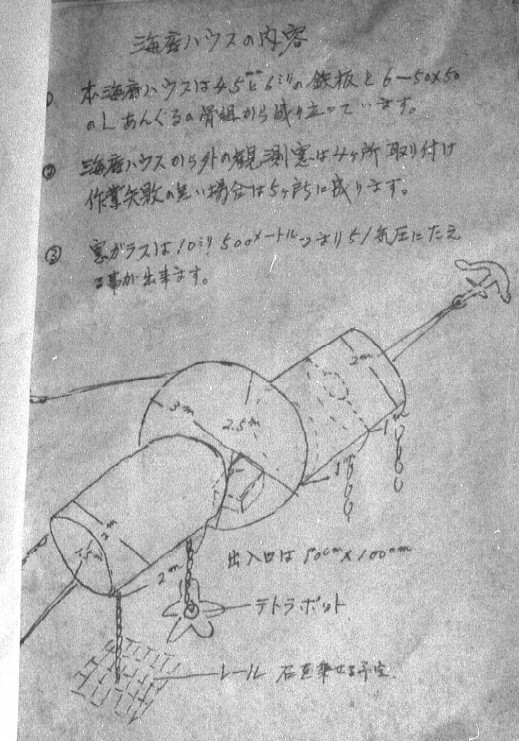 海底ハウスの内容
① 本海底ハウスは4.5mmと6ミリの鉄板と6-50×50
のLあんぐるの骨組から成り立っています。
② 海底ハウスから外の観測窓は4ヶ所取り付け
作業失敗の 場合は5ヶ所に成ります。
③ 窓ガラスは10ミリ 500メートル つまり51気圧にたえ
る事が出来ます。
2m
3m
2.5m
1m
1m
2m
出入口は 50cm×100cm
テトラポット
レール 石を乗せる予定